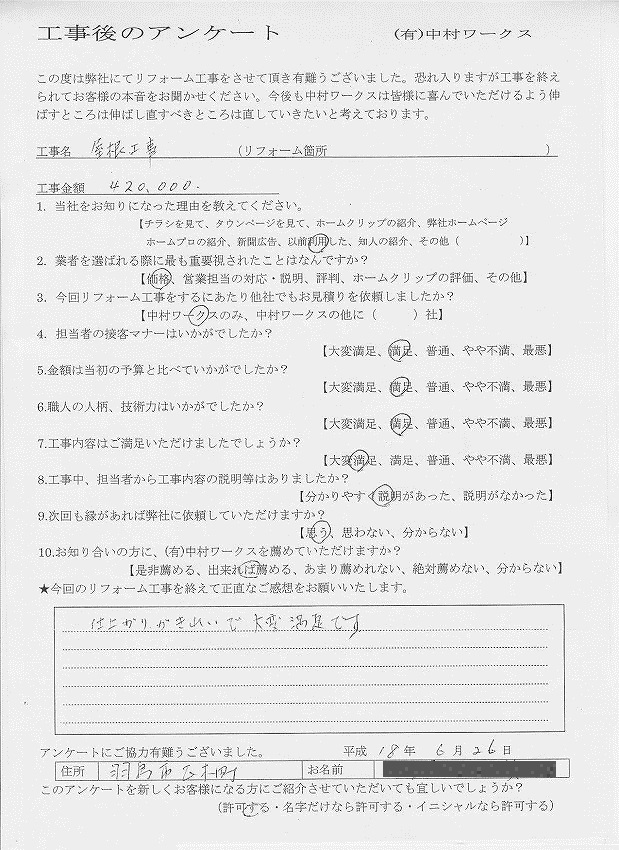 工事後のアンケート (有)中村ワークス
この度は弊社にてリフォーム工事をさせて頂き有難うございました。恐れ入りますが工事を終え
られてお客様の本音をお聞かせください。今後も中村ワークスは皆様に喜んでいただけるよう伸
ばすところは伸ばし直すべきところは直していきたいと考えております。
工事名 屋根工事 (リフォーム箇所 )
工事金額 420,000.
1. 当社をお知りになった理由を教えてください。
【チラシを見て、タウンページを見て、ホームクリップの紹介、弊社ホームページ
ホームプロの紹介、新聞広告、以前利用した、知人の紹介、その他( )】
2. 業者を選ばれる際に最も重要視されたことはなんですか?
【価格、営業担当の対応・説明、評判、ホームクリップの評価、その他】
3. 今回リフォーム工事をするにあたり他社でもお見積りを依頼しましたか?
【中村ワークスのみ、中村ワークスの他に( )社】
4. 担当者の接客マナーはいかがでしたか?
【大変満足、満足、普通、やや不満、最悪】
5.金額は当初の予算と比べていかがでしたか?
【大変満足、満足、普通、やや不満、最悪】
6.職人の人柄、技術力はいかがでしたか?
【大変満足、満足、普通、やや不満、最悪】
7.工事内容はご満足いただけましたでしょうか?
【大変満足、満足、普通、やや不満、最悪】
8.工事中、担当者から工事内容の説明等はありましたか?
【分かりやすく説明があった、説明がなかった】
9.次回も縁があれば弊社に依頼していただけますか?
【思う、思わない、分からない】
10.お知り合いの方に、(有)中村ワークスを薦めていただけますか?
【是非薦める、出来れば薦める、あまり薦めれない、絶対薦めない、分からない】
★今回のリフォーム工事を終えて正直なご感想をお願いいたします。
仕上がりがきれいで大変満足です
アンケートにご協力有難うございました。 平成 18年 6月 26日
住所 羽島市正木町 お名前
このアンケートを新しくお客様になる方にご紹介させていただいても宜しいでしょうか?
(許可する・名字だけなら許可する・イニシャルなら許可する)